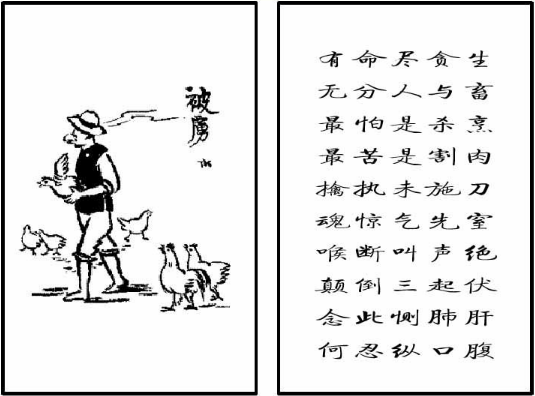 被虏
有命尽贪生
无分人与畜
最怕是杀烹
最苦是割肉
擒执未施刀
魂惊气先窒
喉断叫声绝
颠倒三起伏
念此恻肺肝
何忍纵口腹